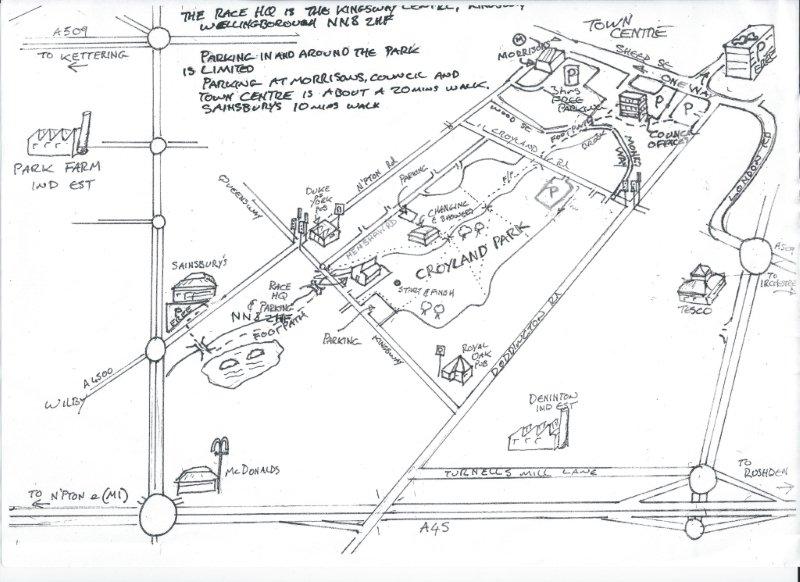 THE RACE HQ IS THE KINGSWAY CENTRE, KINGSWAY
WELLINGBOROUGH NN8 2HF
PARKING IN AND AROUND THE PARK
IS LIMITED
PARKING AT MORRISONS, COUNCIL AND
TOWN CENTRE IS ABOUT A 20 MINS WALK.
SAINSBURY'S 10 MINS WALK
A509
TO KETTERING
PARK FARM
IND EST
TOWN
CENTRE
M
MORRISONS
SHEEP ST
ONE WAY
P
FREE
P
3hrs
FREE
PARKING
P
P
COUNCIL
OFFICES
WOOD ST
FOOTPATH
CROYLAND RD
LONDON RD
QUEENSWAY
DUKE
OF
YORK
PUB
N'PTON RD
PARKING
HENSHAWS RD
CHANGING
& SHOWERS
F/P
P
CROYLAND PARK
START & FINISH
RACE
HQ
&
PARKING
NN8 2HF
FOOTPATH
PARKING
KINGSWAY
SAINSBURY'S
P
FREE
A4500
WILBY
ROYAL
OAK
PUB
DODDINGTON RD
TESCO
A509
TO
DENINTON
IND EST
TURNELLS MILL LANE
TO
RUSHDEN
McDONALDS
TO N'PTON & (M1)
A45